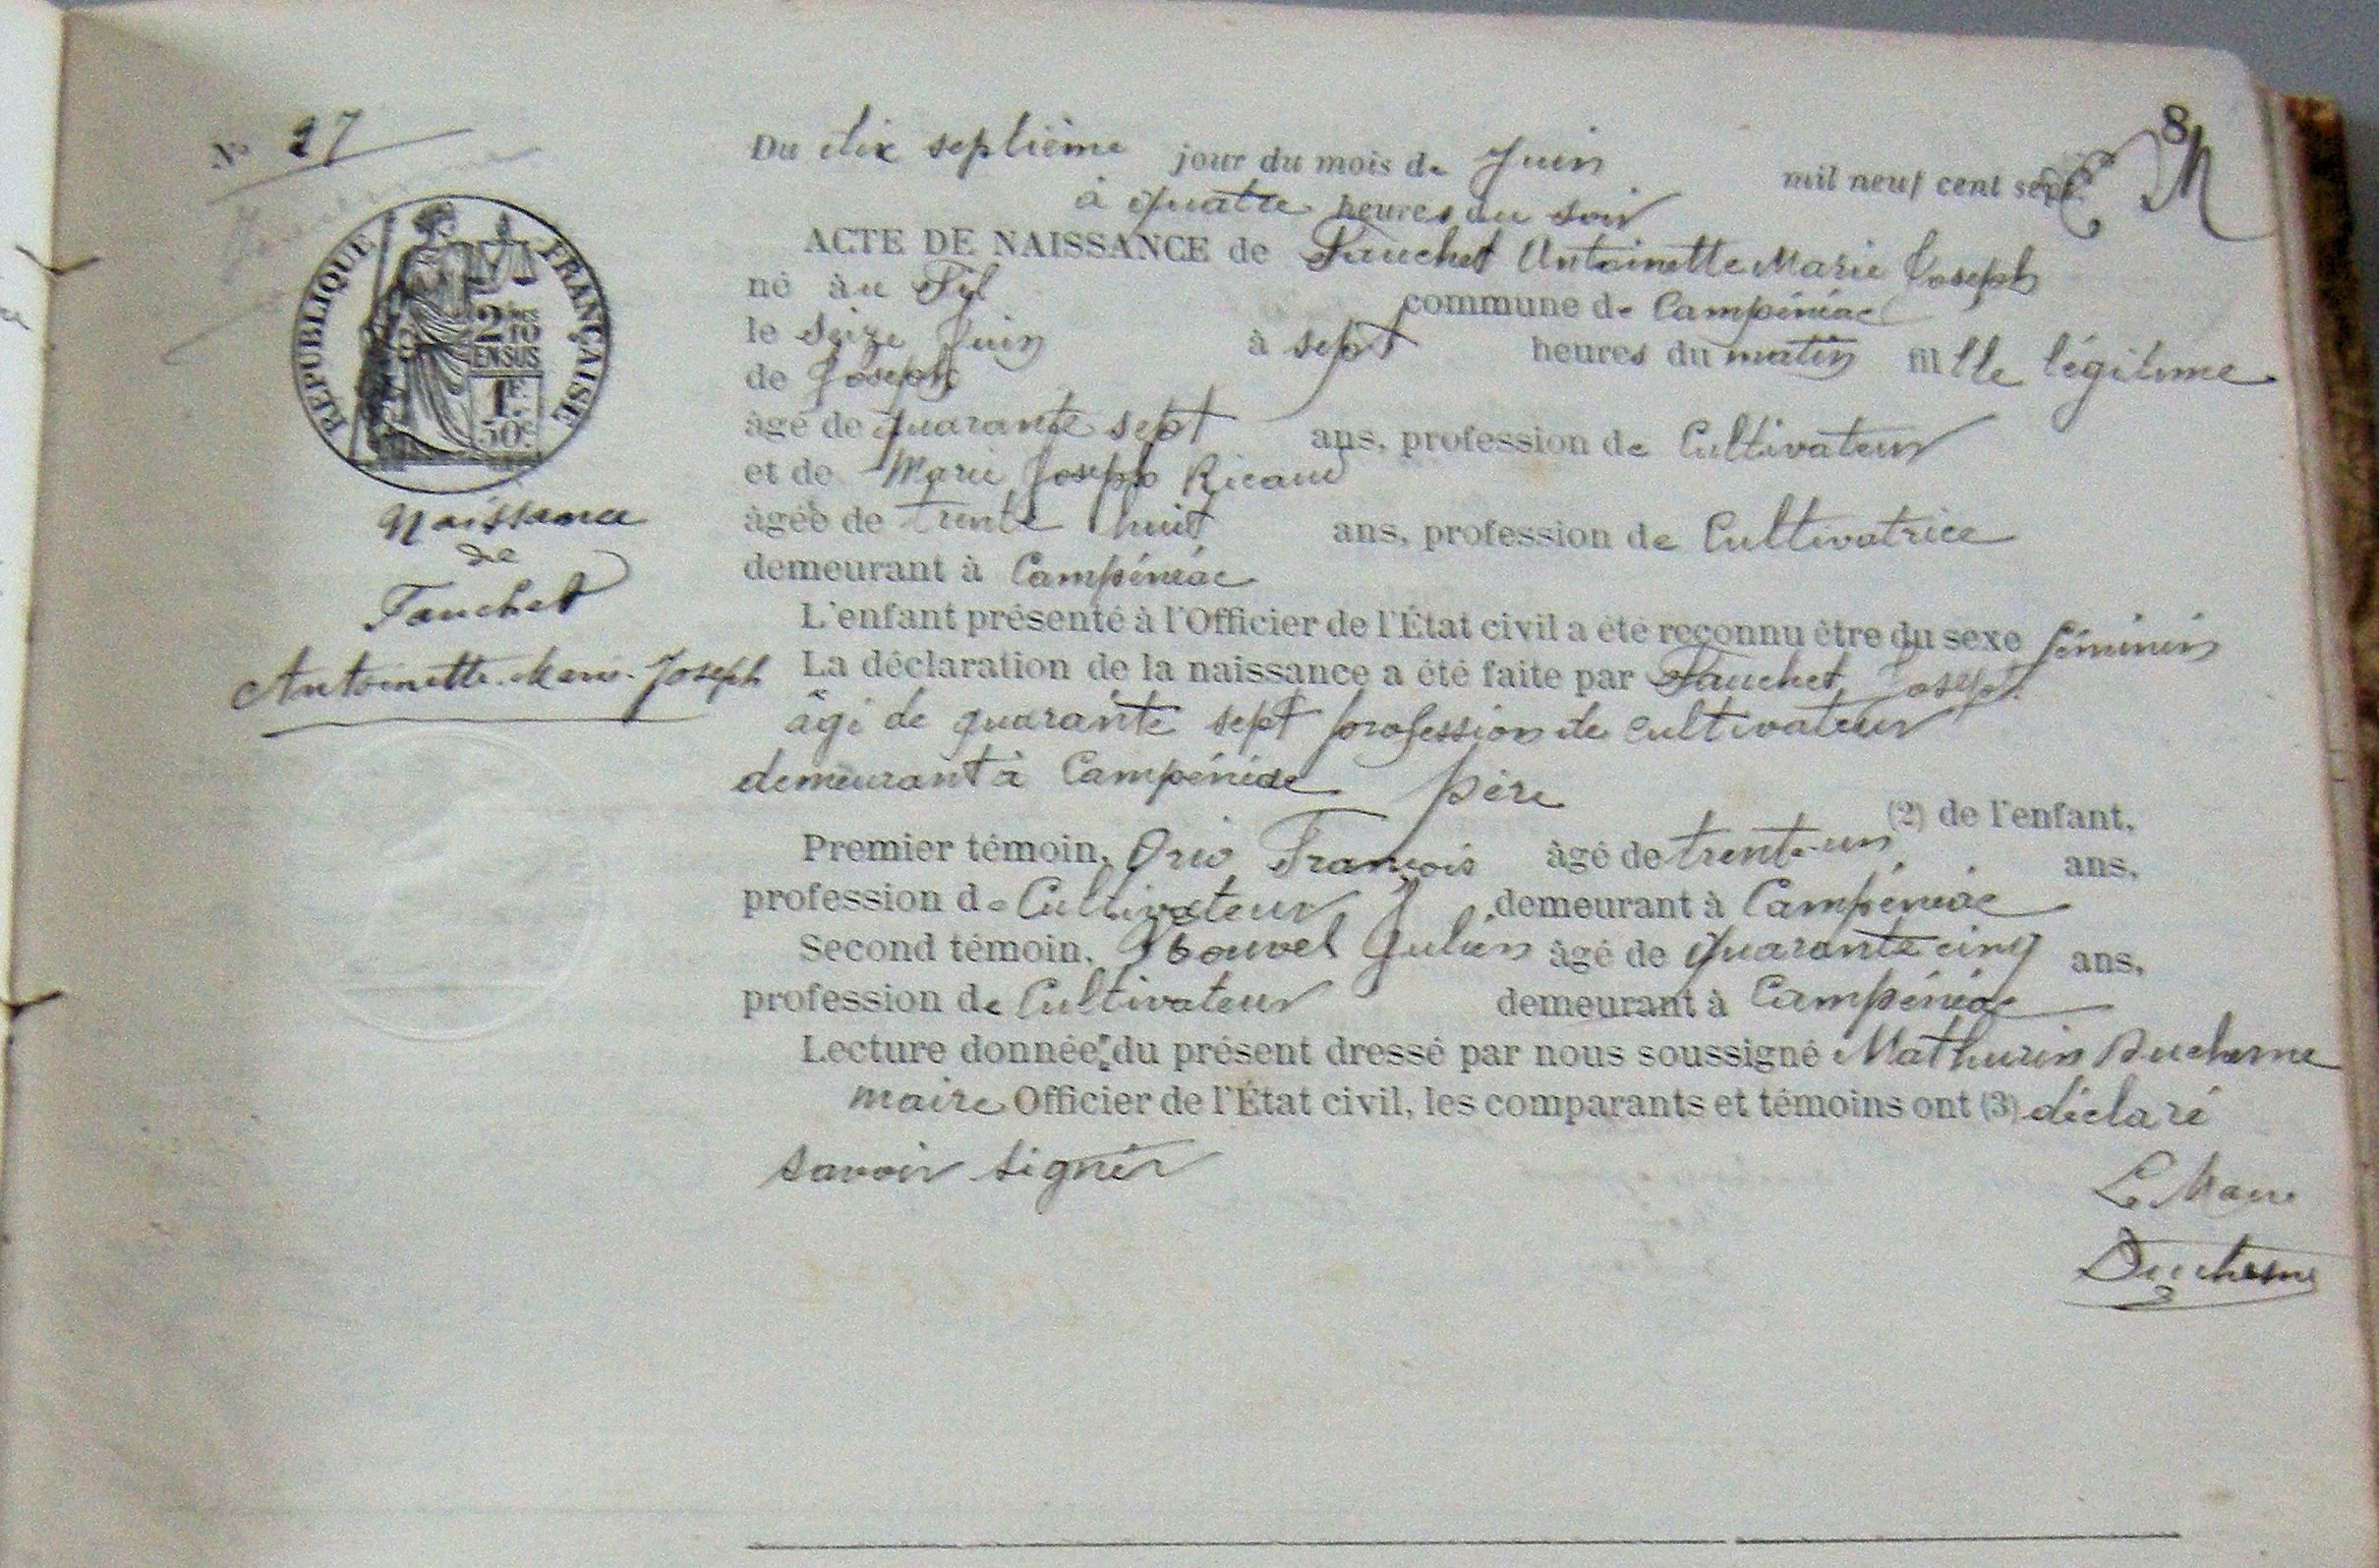 8
N° 17
Du dix septième jour du mois de Juin mil neuf cent sept
à quatre heures du soir
ACTE DE NAISSANCE de Fauchet Antoinette Marie Joseph
né à au Fyl commune de Campénéac
le Seize Juin à sept heures du matin fille légitime
de Joseph
âgé de quarante sept ans, profession de Cultivateur
et de Marie Joseph Ricaud
âgée de trente huit ans, profession de Cultivatrice
demeurant à Campénéac
L'enfant présenté à l'Officier de l'État civil a été reconnu être du sexe féminin
La déclaration de la naissance a été faite par Fauchet Joseph
âgé de quarante sept profession de cultivateur
demeurant à Campénéac père
(2) de l'enfant,
Premier témoin, Orio François âgé de trente-un ans,
profession de Cultivateur demeurant à Campénéac
Second témoin, Houvel Julien âgé de quarante cinq ans,
profession de Cultivateur demeurant à Campénéac
Lecture donnée du présent dressé par nous soussigné Mathurin Duchesne
maire Officier de l'État civil, les comparants et témoins ont (3) déclaré
savoir signer
Le Maire
Duchesne
RÉPUBLIQUE FRANÇAISE
2 DMES
10
EN SUS
1F
50C
Naissance
de
Fauchet
Antoinette-Marie-Joseph